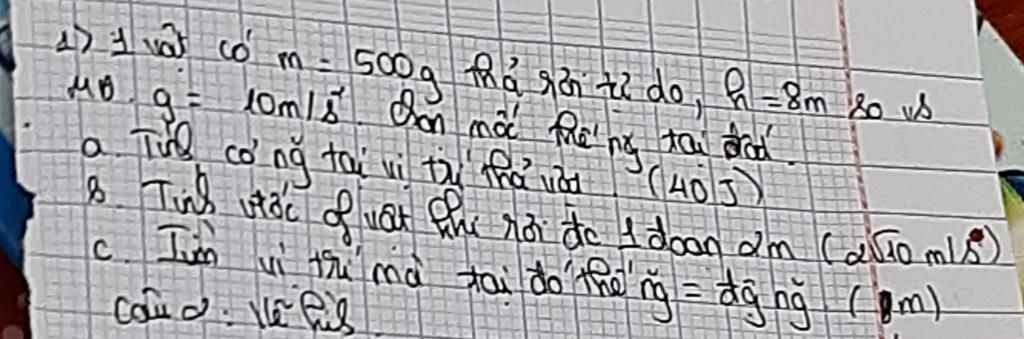 1) 1 vật có m = 500g thả rơi tự do, h = 8m so vs
MĐ. g = 10m/s². Chọn mốc thế ng tại đó.
a. Tính cơ ng tại vị trí thả vật (40J)
b. Tính vtốc of vật khi rơi đc 1 đoạn 2m (2√10 m/s)
c. Tìm vị trí mà tại đó thế ng = động ng ( m)
câu 2. Vẽ hình